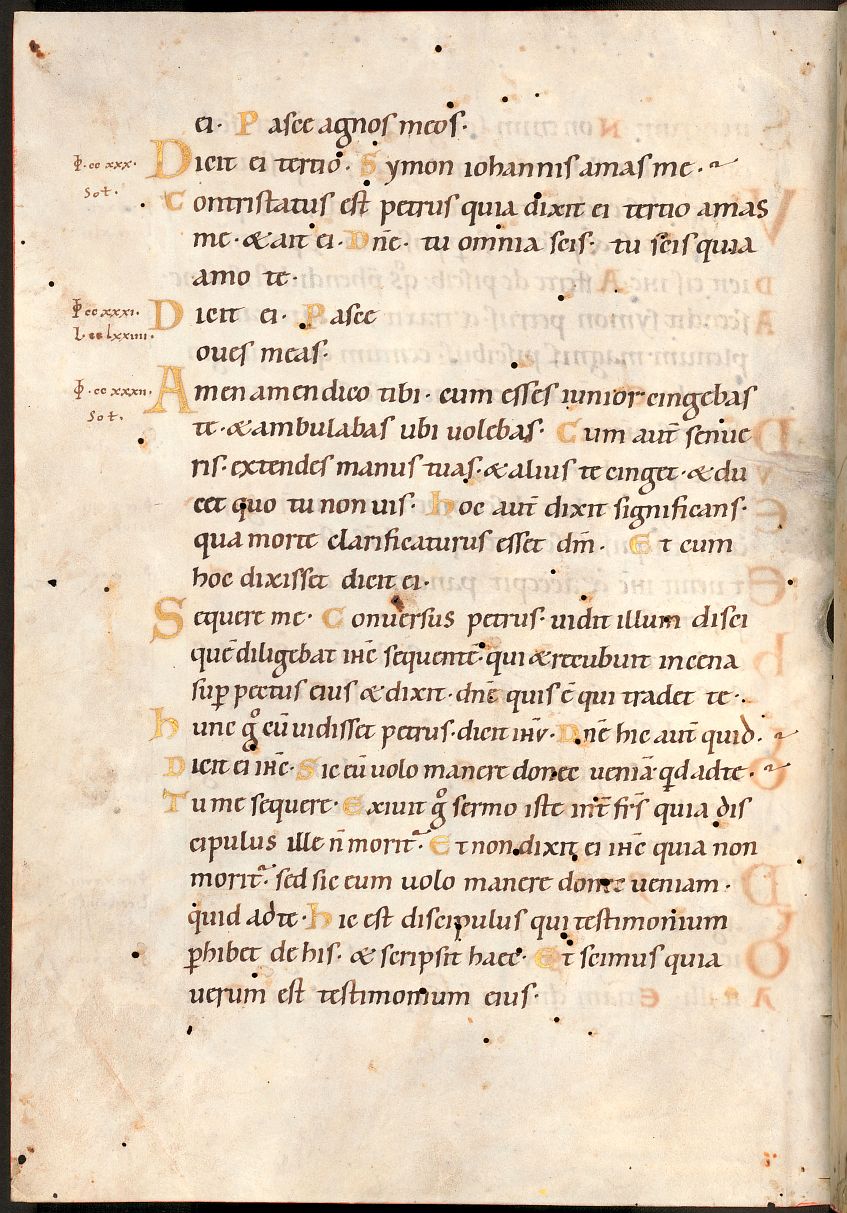 ei · Pasce agnos meos ·
Φ · cc xxx · Dicit ei tertio · Symon iohannis amas me ·
Sot · Contristatus est petrus quia dixit ei tertio amas
me · & ait ei · Dn̄e · tu omnia scis · tu scis quia
amo te ·
Φ cc xxxi · Dicit ei · Pasce
oues meas ·
Φ · cc xxxii · Amen amen dico tibi · cum esses iunior cingebas
Sot · te · & ambulabas ubi uolebas · Cum aut̄ senue
ris · extendes manus tuas · & alius te cinget · & du
cet quo tu non uis · hoc aut̄ dixit significans ·
qua morte clarificaturus esset dm̄ · Et cum
hoc dixisset dicit ei ·
Sequere me · Conuersus petrus · uidit illum disci
quē diligebat ihc̄ sequentē · qui & recubuit in cena
sup̱ pectus eius & dixit · dn̄e quis ē qui tradet te ·
hunc gͦ eū uidisset petrus · dicit ihv̄ · Dn̄e hic aut̄ quid ·
Dicit ei ihc̄ · Sic eū uolo manere donec ueniā · qͥd ad te ·
Tu me sequere · Exiuit gͦ sermo iste int̄ fr̄s quia dis
cipulus ille n̄ morit᷑ · Et non dixit ei ihc̄ quia non
morit᷑ · sed sic eum uolo manere donec ueniam ·
quid ad te · hic est discipulus qui testimonium
ꝑhibet de his · & scripsit haec · Et scimus quia
uerum est testimonium eius ·